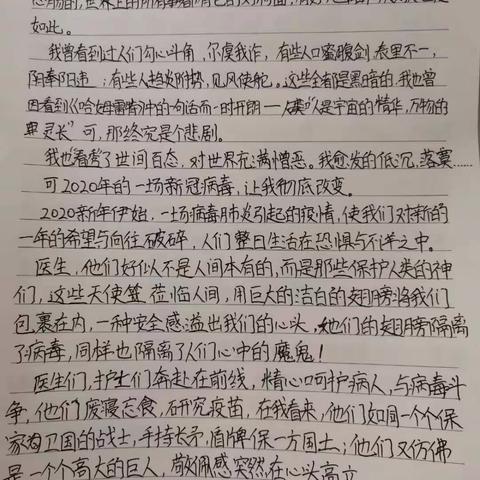 如此。
我曾看到过人们勾心斗角，尔虞我诈，有些人口蜜腹剑，表里不一，
阳奉阴违；有些人趋炎附势，见风使舵。这些全都是黑暗的，我也曾
因看到《哈姆雷特》中的一句话而一时开朗——人类"是宇宙的精华，万物的
灵长"可，那终究是个悲剧。
我也看穿了世间百态，对世界充满憎恶。我愈发的低沉，落寞……
可2020年的一场新冠病毒，让我彻底改变。
2020新年伊始，一场病毒肺炎引起的疫情，使我们对新的
一年的希望与向往破碎，人们整日生活在恐惧与不详之中。
医生，他们好似不是人间本有的，而是那些保护人类的神
们，这些天使笠莅临人间，用巨大的洁白的翅膀将我们
包裹在内，一种安全感溢出我们的心头，他们的翅膀隔离
了病毒，同样也隔离了人们心中的魔鬼！
医生们，护士们奔赴在前线，精心呵护病人，与病毒斗
争，他们废寝忘食，研究疫苗，在我看来，他们如同一个个保
家为卫国的战士，手持长矛，盾牌保一方国土；他们又仿佛
是一个个高大的巨人，敬佩感突然在心头高立